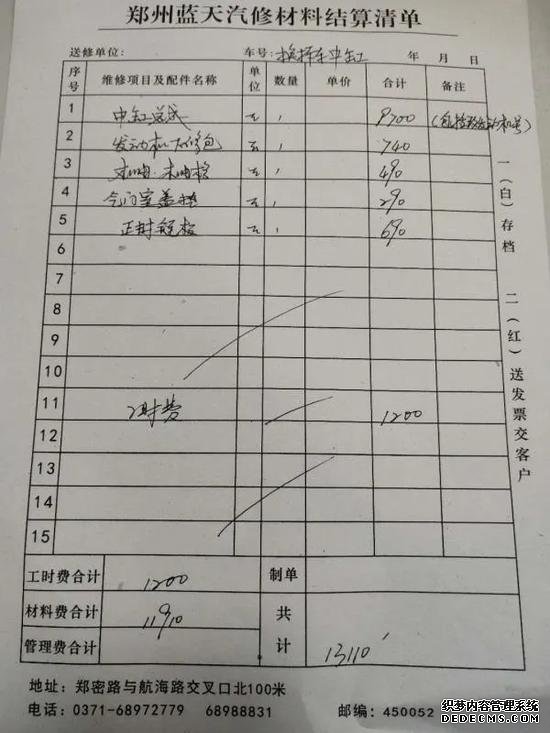 郑州蓝天汽修材料结算清单
送修单位: 车号: 年 月 日
序号 维修项目及配件名称 单位 数量 单价 合计 备注
1 中缸总成 9700
2 发动机大修包 740
3 机油. 490
4 290
5 正时 690
6
7
8
9
10
11 1200
12
13
14
15
工时费合计 1200 制单
材料费合计 11910 共计 13110
管理费合计
地址: 郑密路与航海路交叉口北100米
电话: 0371-68972779 68988831 邮编: 450052
一(白)存档 二(红)送发票交客户
织梦内容管理系统
DEDECMS.COM